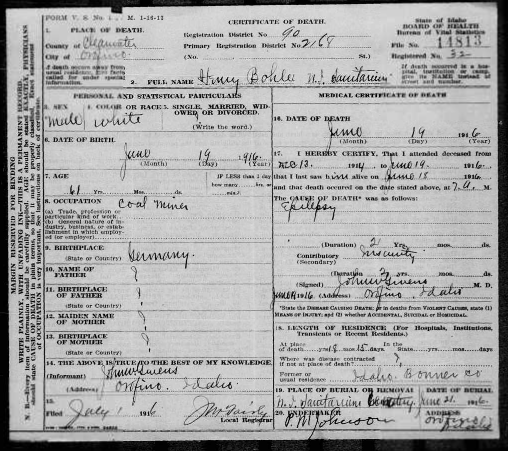 FORM V. S. No. M. 1-15-13
CERTIFICATE OF DEATH
State of Idaho
BOARD OF HEALTH
Bureau of Vital Statistics
1. PLACE OF DEATH.
County of Clearwater
City of Orofino
Registration District No. 90
Primary Registration District No. 2168
File No. 14813
Registered No.
(No. St.)
If death occurs away from usual residence, give facts called for under special information.
If death occurred in a hospital, institution or camp, give its NAME instead of street and number.
2. FULL NAME Henry Bohle N. I. Sanitarium
PERSONAL AND STATISTICAL PARTICULARS
MEDICAL CERTIFICATE OF DEATH
3. SEX 4. COLOR OR RACE 5. SINGLE, MARRIED, WIDOWED, OR DIVORCED.
male white ?
(Write the word.)
6. DATE OF BIRTH
June 19 1916.
(Month) (Day) (Year)
7. AGE
IF LESS than 1 day
how many hrs. or
min.?
61 Yrs. mos. ds.
8. OCCUPATION Coal Miner
(a) Trade, profession or particular kind of work.
(b) General nature of industry, business, or establishment in which employed (or employer)
9. BIRTHPLACE
(State or Country) Germany.
10. NAME OF FATHER ?
11. BIRTHPLACE OF FATHER ?
(State or Country)
12. MAIDEN NAME OF MOTHER ?
13. BIRTHPLACE OF MOTHER ?
(State or Country)
14. THE ABOVE IS TRUE TO THE BEST OF MY KNOWLEDGE.
(Informant) John W Givens
(Address) Orofino Idaho
15.
Filed July 1 1916
Local Registrar
16. DATE OF DEATH
June 19 1916
(Month) (Day) (Year)
17. I HEREBY CERTIFY, That I attended deceased from
1914 to June 19. 1916.
that I last saw him alive on June 18 1916
and that death occurred on the date stated above, at 7 A. M.
The CAUSE OF DEATH* was as follows:
Epilepsy
(Duration) 2 Yrs. mos. ds.
Contributory Insanity
(Secondary)
(Duration) 2 Yrs. mos. ds.
(Signed) John W Givens M. D.
1916 (Address) Orofino Idaho
*State the DISEASE CAUSING DEATH; or in deaths from VIOLENT CAUSES, state (1) MEANS OF INJURY; and (2) whether ACCIDENTAL, SUICIDAL or HOMICIDAL.
18. LENGTH OF RESIDENCE (For Hospitals, Institutions, Transients or Recent Residents.)
At place of death mos. 15 days. State yrs. mos. days
Where was disease contracted if not at place of death? ?
Former or usual residence Idaho. Bonner Co
19. PLACE OF BURIAL OR REMOVAL DATE OF BURIAL
N. I. Sanitarium Cemetery June 21. 1916.
20. UNDERTAKER ADDRESS
P. M Johnson Orofino Idaho
MARGIN RESERVED FOR BINDING
WRITE PLAINLY, WITH UNFADING INK—THIS IS A PERMANENT RECORD